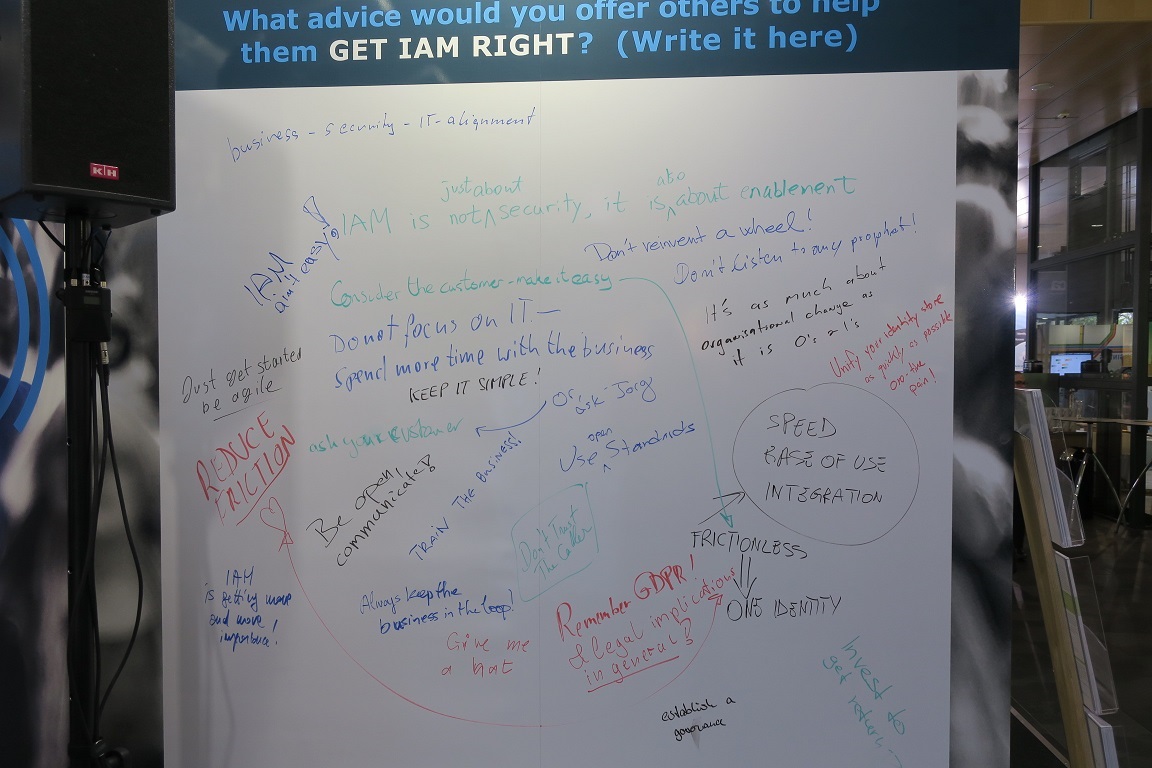 What advice would you offer others to help
them GET IAM RIGHT? (Write it here)
K&H
business - security - IT - alignment
just about
also
IAM is not ^ security, it is ^ about enablement
IAM
ain't easy!
Don't reinvent a wheel!
Don't listen to any prophet!
Consider the customer - make it easy
It's as much about
organisational change as
it is 0's & 1's
Do not focus on IT -
Spend more time with the business
KEEP IT SIMPLE!
Unify your identity store
as quickly as possible
pain!
Just get started
be agile
Or ask Jorg
ask your customer
REDUCE
FRICTION
open
Use ^ Standards
SPEED
EASE OF USE
INTEGRATION
Be open,
communicate!
TRAIN THE BUSINESS!
Don't Trust
The Caller
FRICTIONLESS
ONE IDENTITY
IAM
is getting more
and more
importance!
Always keep the
business in the loop!
Give me
a hat
Remember GDPR!
& legal implications
in general?
establish a
governance
Invest to
get return...